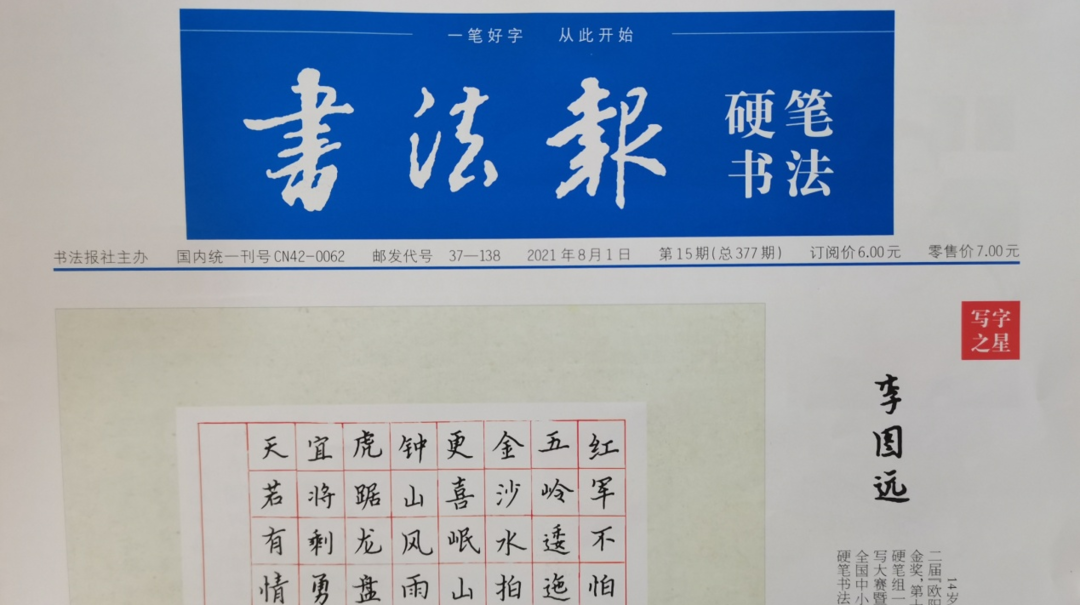 一笔好字 从此开始
书法报
硬笔
书法
书法报社主办 国内统一刊号CN42-0062 邮发代号 37—138 2021年8月1日 第15期(总377期) 订阅价6.00元 零售价7.00元
写字
之星
李图远
14岁
二届「欧阳
金奖、第
硬笔组一
写大赛暨
全国中小
硬笔书法
红军不怕
五岭逶迤
金沙水拍
更喜岷山
钟山风雨
虎踞龙盘
宜将剩勇
天若有情